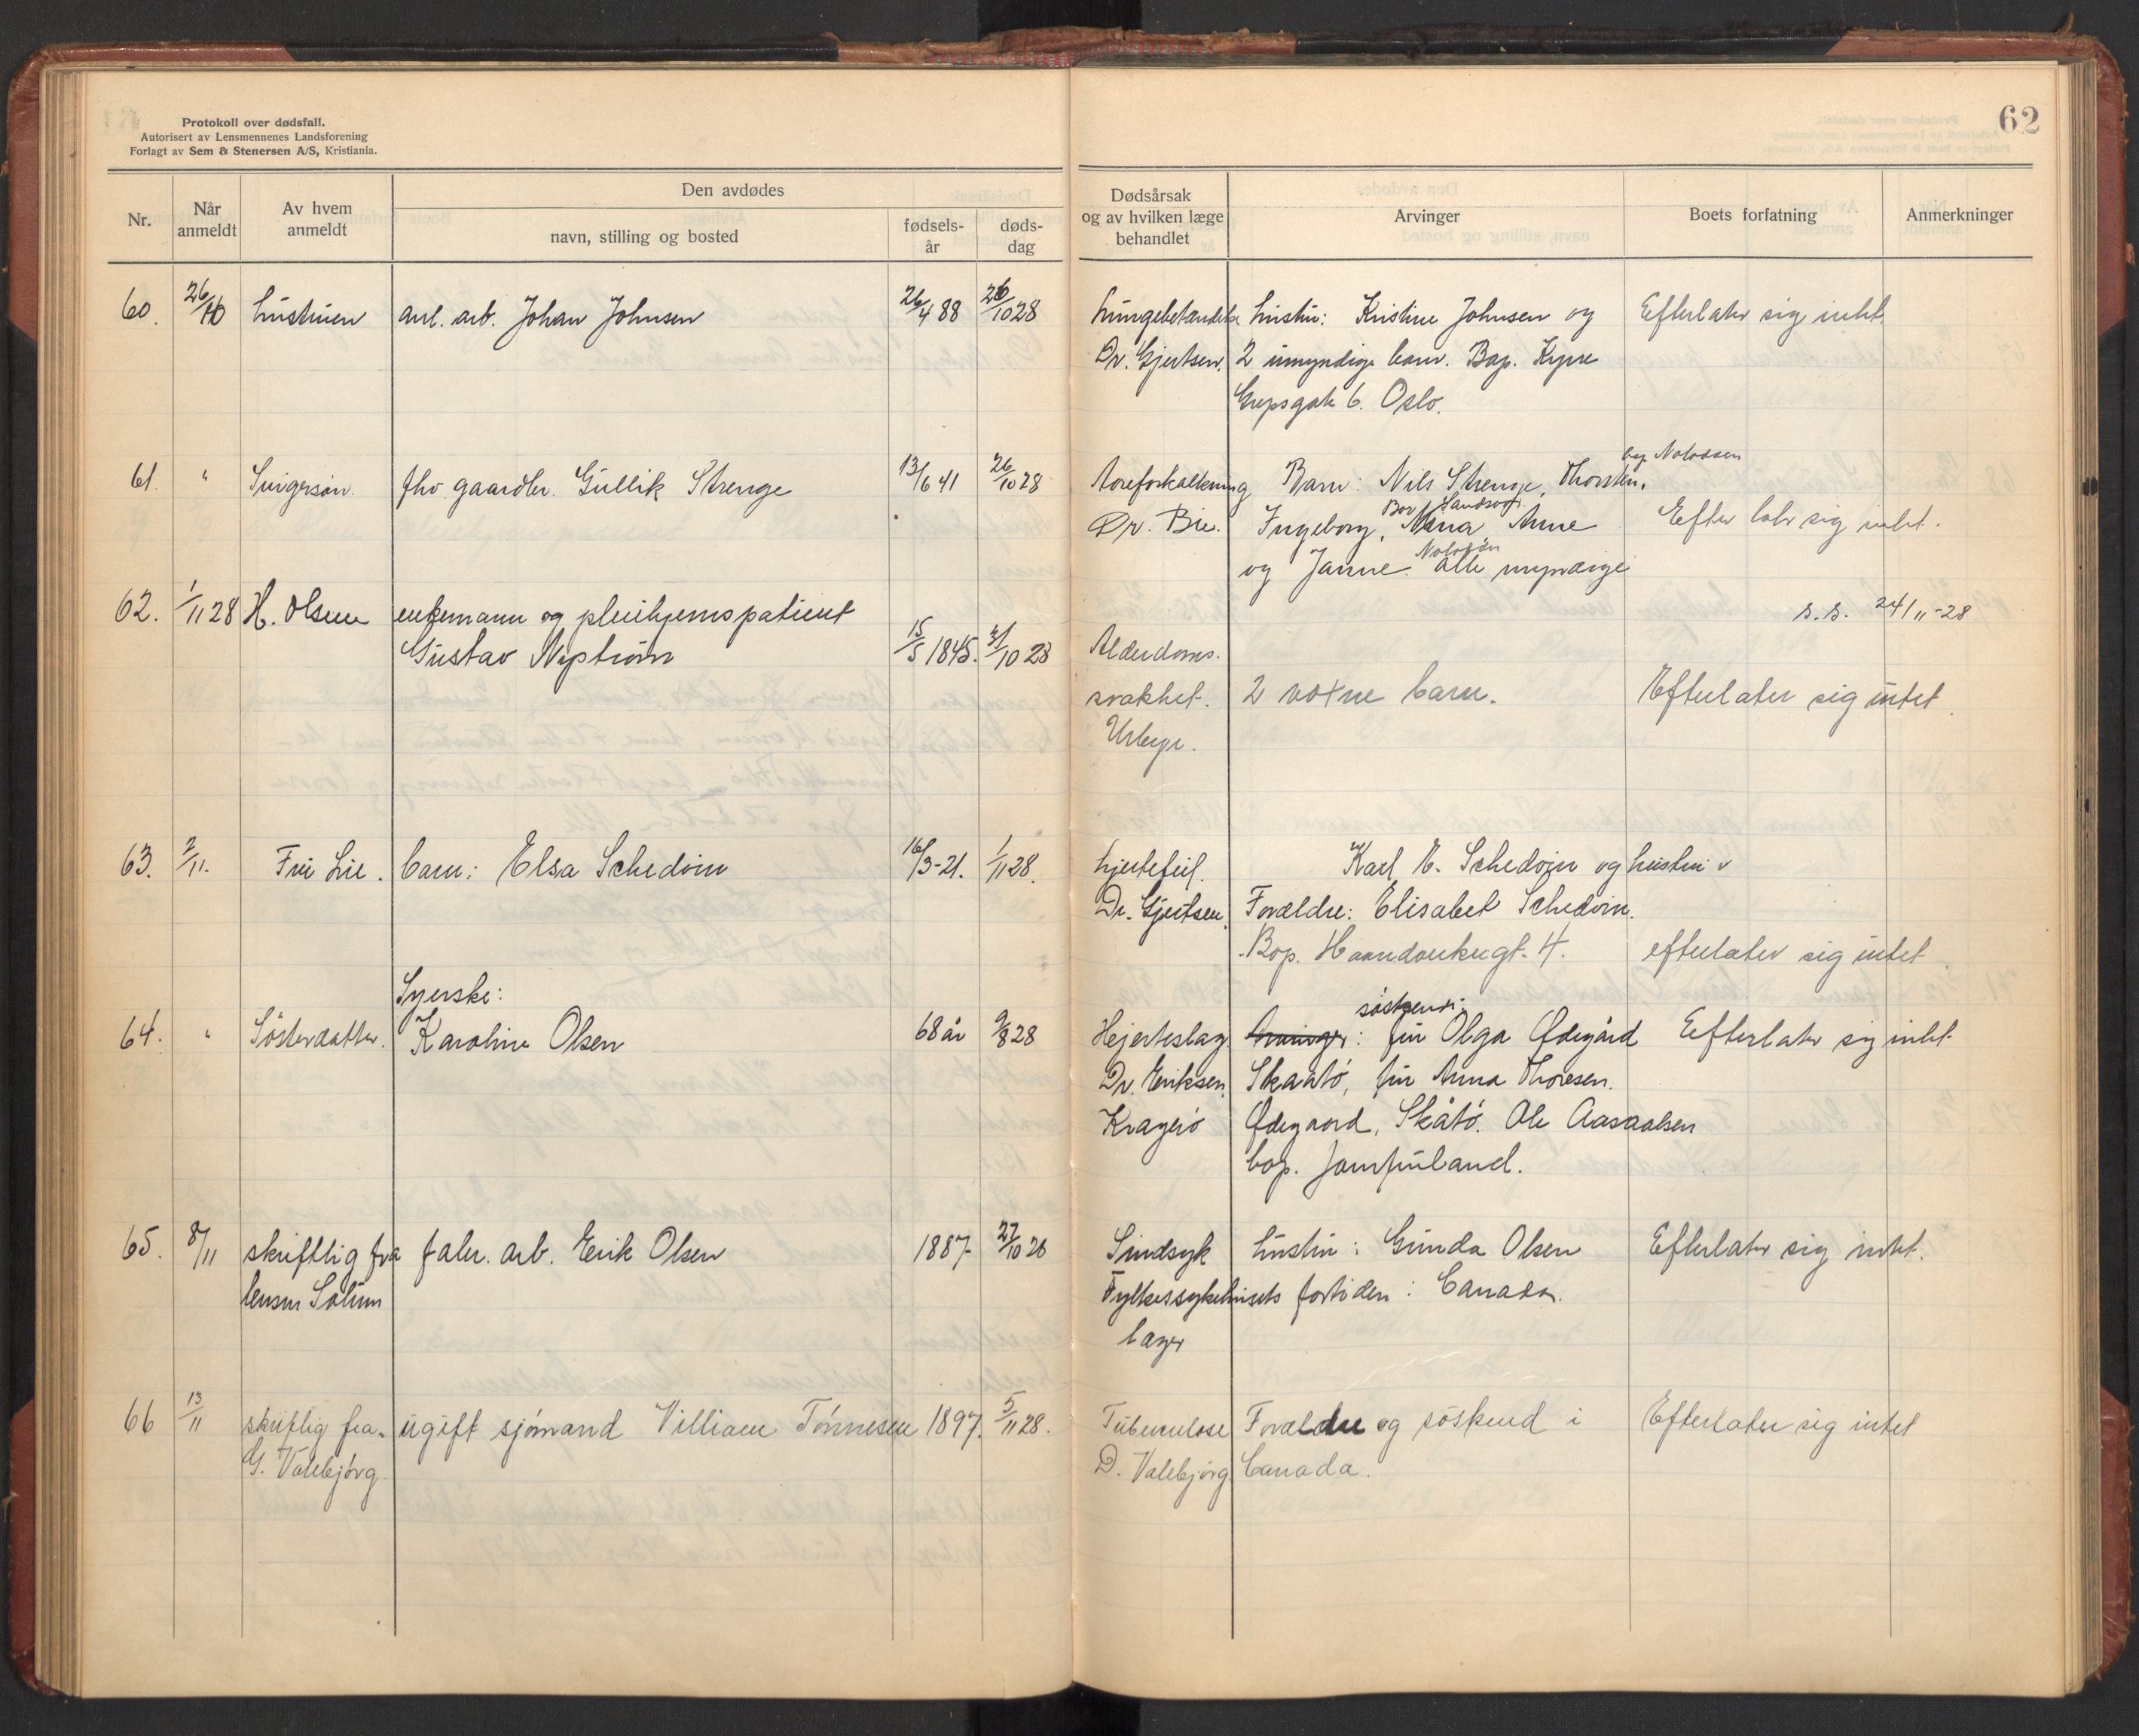 Protokoll over dødsfall.
Autorisert av Lensmennenes Landsforening
Forlagt av Sem & Stenersen A/S, Kristiania.
62
Nr.
Når anmeldt
Av hvem anmeldt
Den avdødes
navn, stilling og bosted
fødsels-år
døds-dag
Dødsårsak og av hvilken læge behandlet
Arvinger
Boets forfatning
Anmerkninger
60. 26/10 hustruen anl. arb. Johan Johnsen 26/4 88 26/10 28 Lungebetændelse hustru: Kristine Johnsen og Efterlater sig intet.
Dr. Gjertsen. 2 umyndige barn. Bop.
gate 6. Oslo.
bop. Notodden
61. " Svigersøn. fhv. gaardbr. Gullik Strenge 13/6 41 26/10 28 Aareforkalkning Barn: Nils Strenge, Thorsten,
Dr. Bie. Ingeborg, Anne Efterlater sig intet.
og Janne. Alle myndige
62. 1/11 28 H. Olsen enkemann og pleiehjemspatient s.s. 24/11-28
Gustav Nystrøm 15/5 1845. 31/10 28 Alderdoms-
svakhet. 2 voxne barn. Efterlater sig intet.
Urbye.
63. 2/11. Fru Lie. barn: Elsa Schedvin 16/3-21. 1/11 28. hjertefeil. Karl E. Schedvin og hustru
Dr. Gjertsen. Forældre: Elisabet Schedvin.
Bop. 4. efterlater sig intet.
Syerske: søskende
64. " Søsterdatter. Karoline Olsen 68 år 9/8 28 Hjerteslag Arvinger: fru Olga Ødegård Efterlater sig intet
Dr. Eriksen. Skaatø, fru Anna Thoresen.
Kragerø Ødegaard, Skåtø. Ole
bop. Jomfruland.
65. 8/11 skriftlig fra fabr. arb. Erik Olsen 1887. 27/10 28 Sindsyk hustru: Gunda Olsen Efterlater sig intet.
lensm Solum Fylkessykehusets fortiden: Canada.
læger
66 13/11 skriftlig fra ugift sjømand Villiam Tønnesen 1897. 5/11 28. Tuberculose Forældre og søskend i Efterlater sig intet
G. Valebjørg D. Valebjørg Canada.